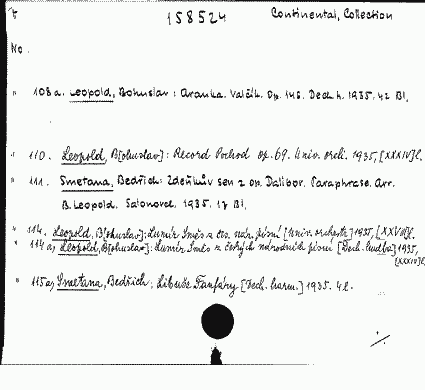 158524 Continental, Collection
No.
" 108a. Leopold, Bohuslav: Aranka. Valčík. Op. 146. Dech. h. 1935. 42 Bl.
" 110. Leopold, B[ohuslav]: Record Pochod op. 69. Univ. orch. 1935, [XXXIV]l.
" 111. Smetana, Bedřich: Zdeňkův sen z op. Dalibor. Paraphrase. Arr.
B. Leopold. Salonorch. 1935. 17 Bl.
" 114. Leopold, B[ohuslav]: Lumír Směs z čes. nár. písní [Univ. orchestr] 1935, [XXVIII]l.
" 114a, Leopold, B[ohuslav]: Lumír Směs z českých národních písní [Dech. hudba] 1935,
[XXXIV]l.
" 115a, Smetana, Bedřich: Libuše Fanfáry [Dech. harm.] 1935. 4 l.